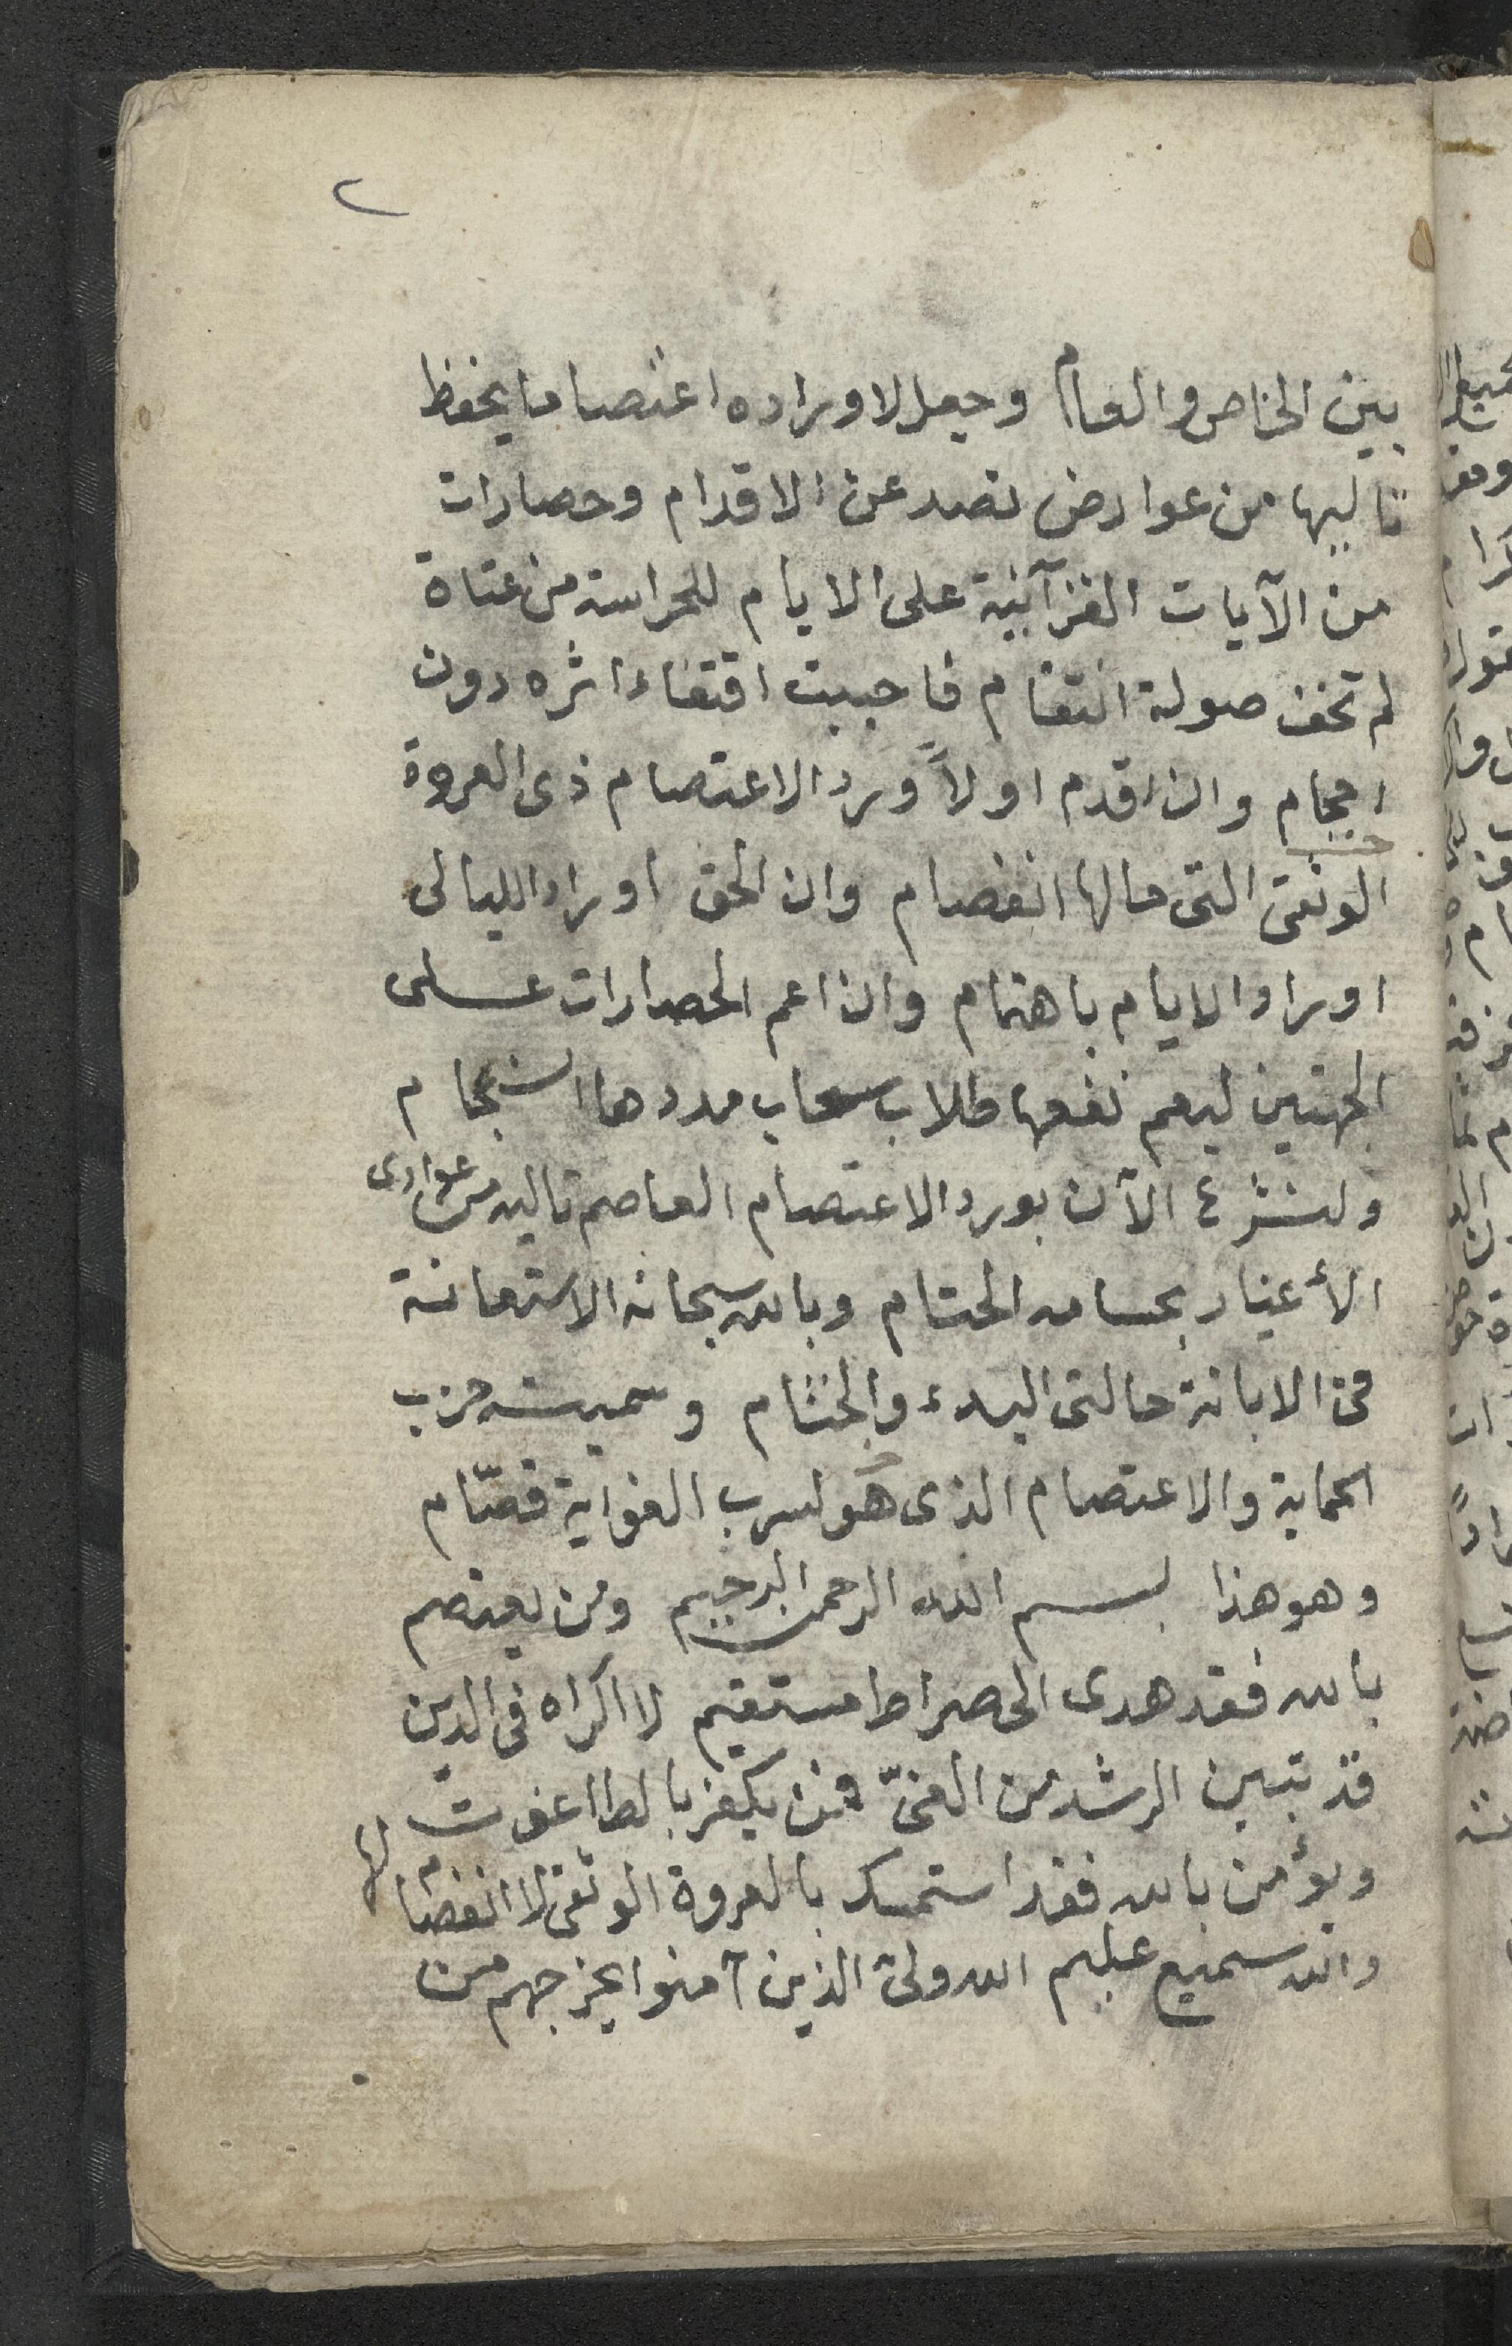 ٢
بين الخاص والعام وجعل لاوراده اعتصاما يحفظ
تاليها من عوارض تصد عن الاقدام وحصارات
من الآيات القرآنية على الايام للحراسة من عتاة
لم تخف صولة انتقام فاحببت اقتفاء اثره دون
احجام وان اقدم اولاً ورد الاعتصام ذى العروة
الوثقى التى مالها انفصام وان الحق اوراد الليالى
اوراد الايام باهتمام وان اعم الحصارات على
الجهتين ليعم نفعها طلاب سحاب مددها انسجام
ولنشرع الآن بورد الاعتصام العاصم تاليه من عوادى
الأغيار بحسامه الحسام وبالله سبحانه الاستعانة
فى الابانة حالتى البدء والختام وسميته حزب
الحماية والاعتصام الذى هو لسرب الغواية قصّام
وهو هذا بسم الله الرحمن الرحيم ومن يعتصم
بالله فقد هدى الى صراط مستقيم لا اكراه فى الدين
قد تبين الرشد من الغىّ فمن يكفر بالطاغوت
ويؤمن بالله فقد استمسك بالعروة الوثقى لا انفصام لها
والله سميع عليم الله ولى الذين آمنوا يخرجهم من